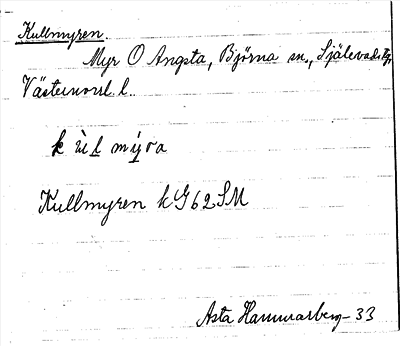 Kullmyren.
Myr O Angsta, Björna sn., Själevads tg,
Västernorrl. l.
k ù l mỳra
Kullmyren k G 62 SM
Asta Hammarberg - 33